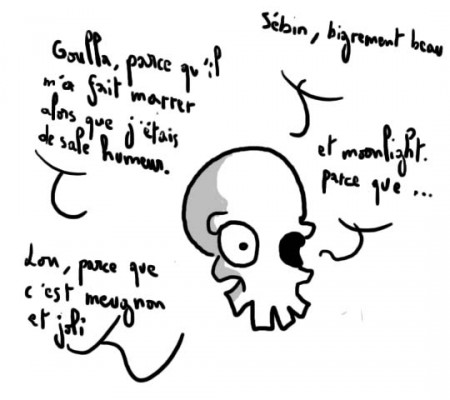 Goulla, parce qu'il
m'a fait marrer
alors que j'étais
de sale humeur.
Sébin, bigrement beau
et moonlight.
parce que ...
Lou, parce que
c'est meugnon
et joli